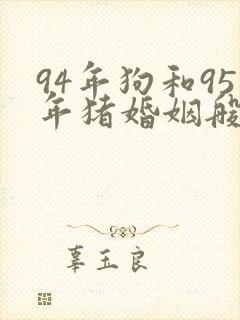 94年狗和95
年猪婚姻般
辜玉良